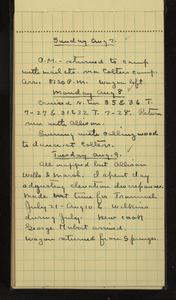 Sunday Aug 7.
P.M. returned to camp
with mail etc. via Colter camp.
Arr. 8:30 P.M. Wagon left.
Monday Aug 8
N. tier 35 & 36 T.
7-27 & 31 & 32 T. 7-28. Return
with Allison.
Evening with Collingwood
to dance at Colters.
Tuesday Aug. 9.
All mapped but Allison
Wells & Marsh. I spent day
adjusting elevation discrepancies.
Made out time for Trammel
July 21 - Aug 10. & Wilkins
during July. New cook
George Hubert arrived.
Wagon returned from Springer.